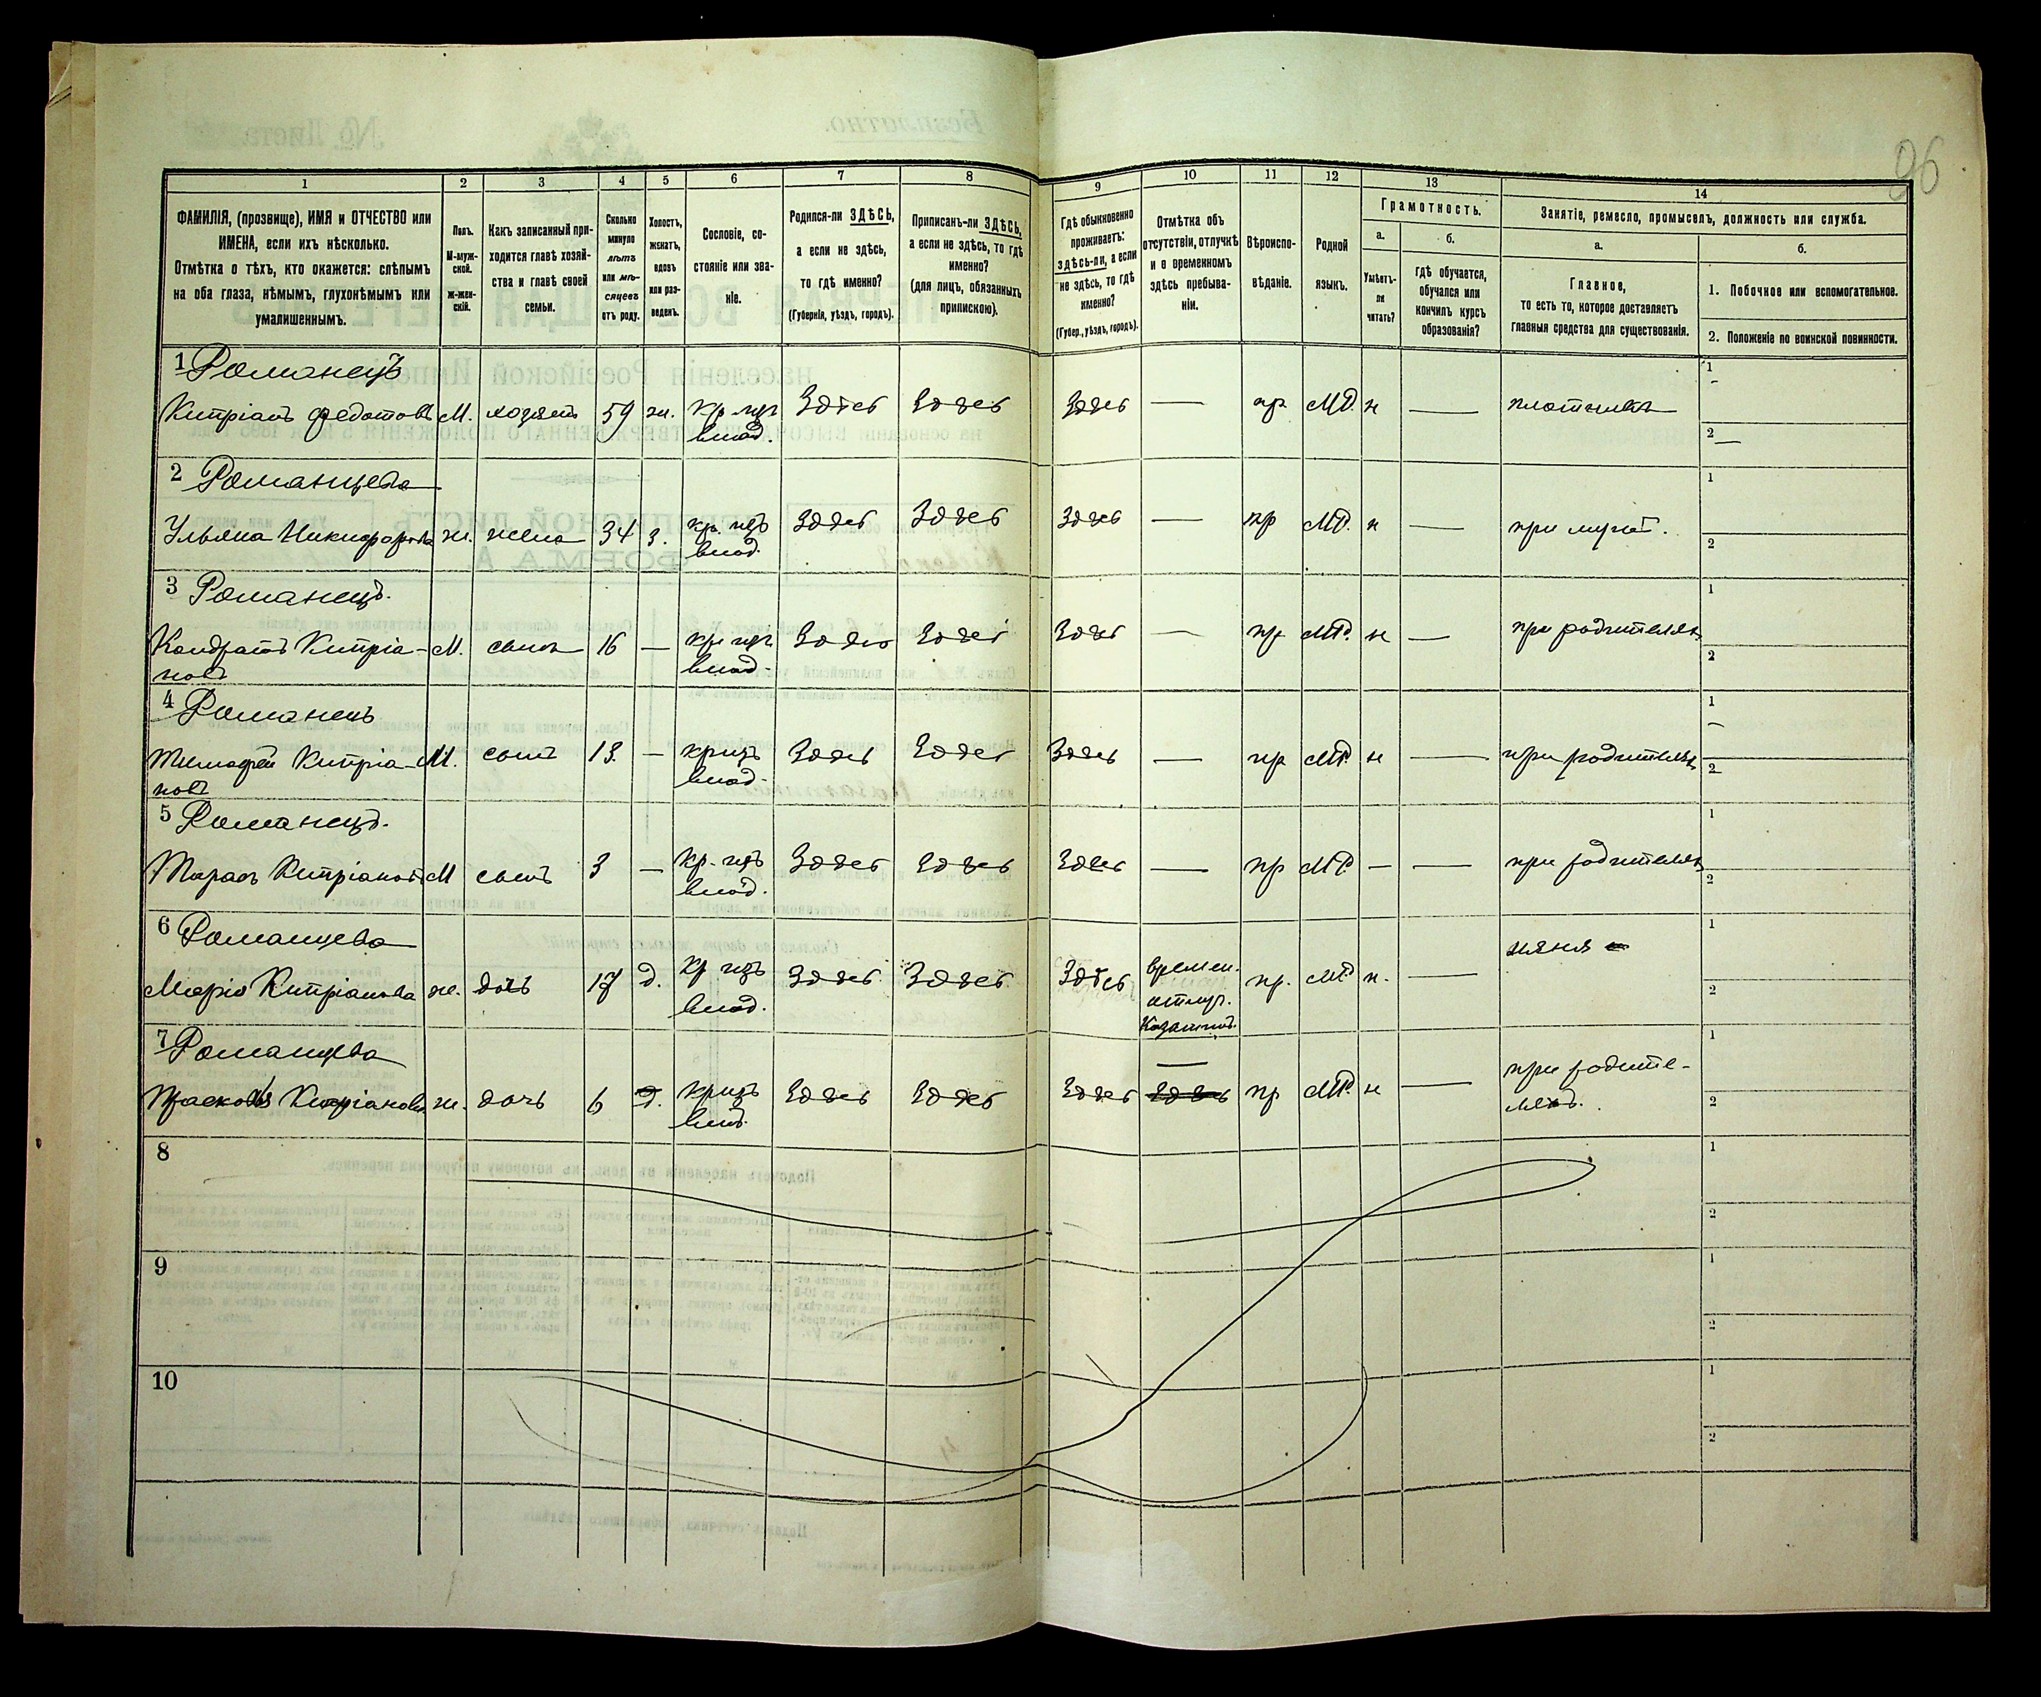 96
1 2 3 4 5 6 7 8 9 10 11 12 13 14
ФАМИЛІЯ, (прозвище), ИМЯ и ОТЧЕСТВО или
ИМЕНА, если ихъ нѣсколько.
Отмѣтка о тѣхъ, кто окажется: слѣпымъ
на оба глаза, нѣмымъ, глухонѣмымъ или
умалишеннымъ.
Полъ.
М-муж-
ской.
ж-жен-
скій.
Какъ записанный при-
ходится главѣ хозяй-
ства и главѣ своей
семьи.
Сколько
минуло
лѣтъ
или мѣ-
сяцевъ
отъ роду.
Холостъ,
женатъ,
вдовъ
или раз-
веденъ.
Сословіе, со-
стояніе или зва-
ніе.
Родился-ли ЗДѢСЬ,
а если не здѣсь,
то гдѣ именно?
(Губернія, уѣздъ, городъ).
Приписанъ-ли ЗДѢСЬ,
а если не здѣсь, то гдѣ
именно?
(для лицъ, обязанныхъ
припискою).
Гдѣ обыкновенно
проживаетъ:
здѣсь-ли, а если
не здѣсь, то гдѣ
именно?
(Губер., уѣздъ, городъ).
Отмѣтка объ
отсутствіи, отлучкѣ
и о временномъ
здѣсь пребыва-
ніи.
Вѣроиспо-
вѣданіе.
Родной
языкъ.
Грамотность.
а.
Умѣетъ-
ли
читать?
б.
гдѣ обучается,
обучался или
кончилъ курсъ
образованія?
Занятіе, ремесло, промыселъ, должность или служба.
а.
Главное,
то есть то, которое доставляетъ
главныя средства для существованія.
б.
1. Побочное или вспомогательное.
2. Положеніе по воинской повинности.
1 Романецъ
Кипріанъ Федотовъ М. хозяинъ 59 ж. Здѣсь Здѣсь Здѣсь — пр МР. н — плотникъ
1 -
2 —
2 Романцева
Ульяна Никифорова ж. жена 34 з. Здѣсь Здѣсь Здѣсь — пр МР. н — при мужѣ.
1
2
3 Романецъ.
Кондратъ Кипріа-
новъ М. сынъ 16 — Здѣсь Здѣсь Здѣсь — пр МР. н — при родителяхъ
1
2
4 Романецъ
Тимофей Кипріа-
новъ М. сынъ 13. — Здѣсь Здѣсь Здѣсь — пр МР. н — при родителяхъ
1 -
2
5 Романецъ.
Тарасъ Кипріановъ М сынъ 3 — Здѣсь Здѣсь Здѣсь — пр МР — — при родителяхъ
1
2
6 Романцева
Марія Кипріанова ж. дочь 17 д. Здѣсь Здѣсь Здѣсь времен.
отлуч.
пр. МР н. — няня
1
2
7 Романцева
Прасковья Кипріанова ж. дочь 6 д. Здѣсь Здѣсь Здѣсь — пр МР. н — при родите-
ляхъ.
1
2
8
1
2
9
1
2
10
1
2